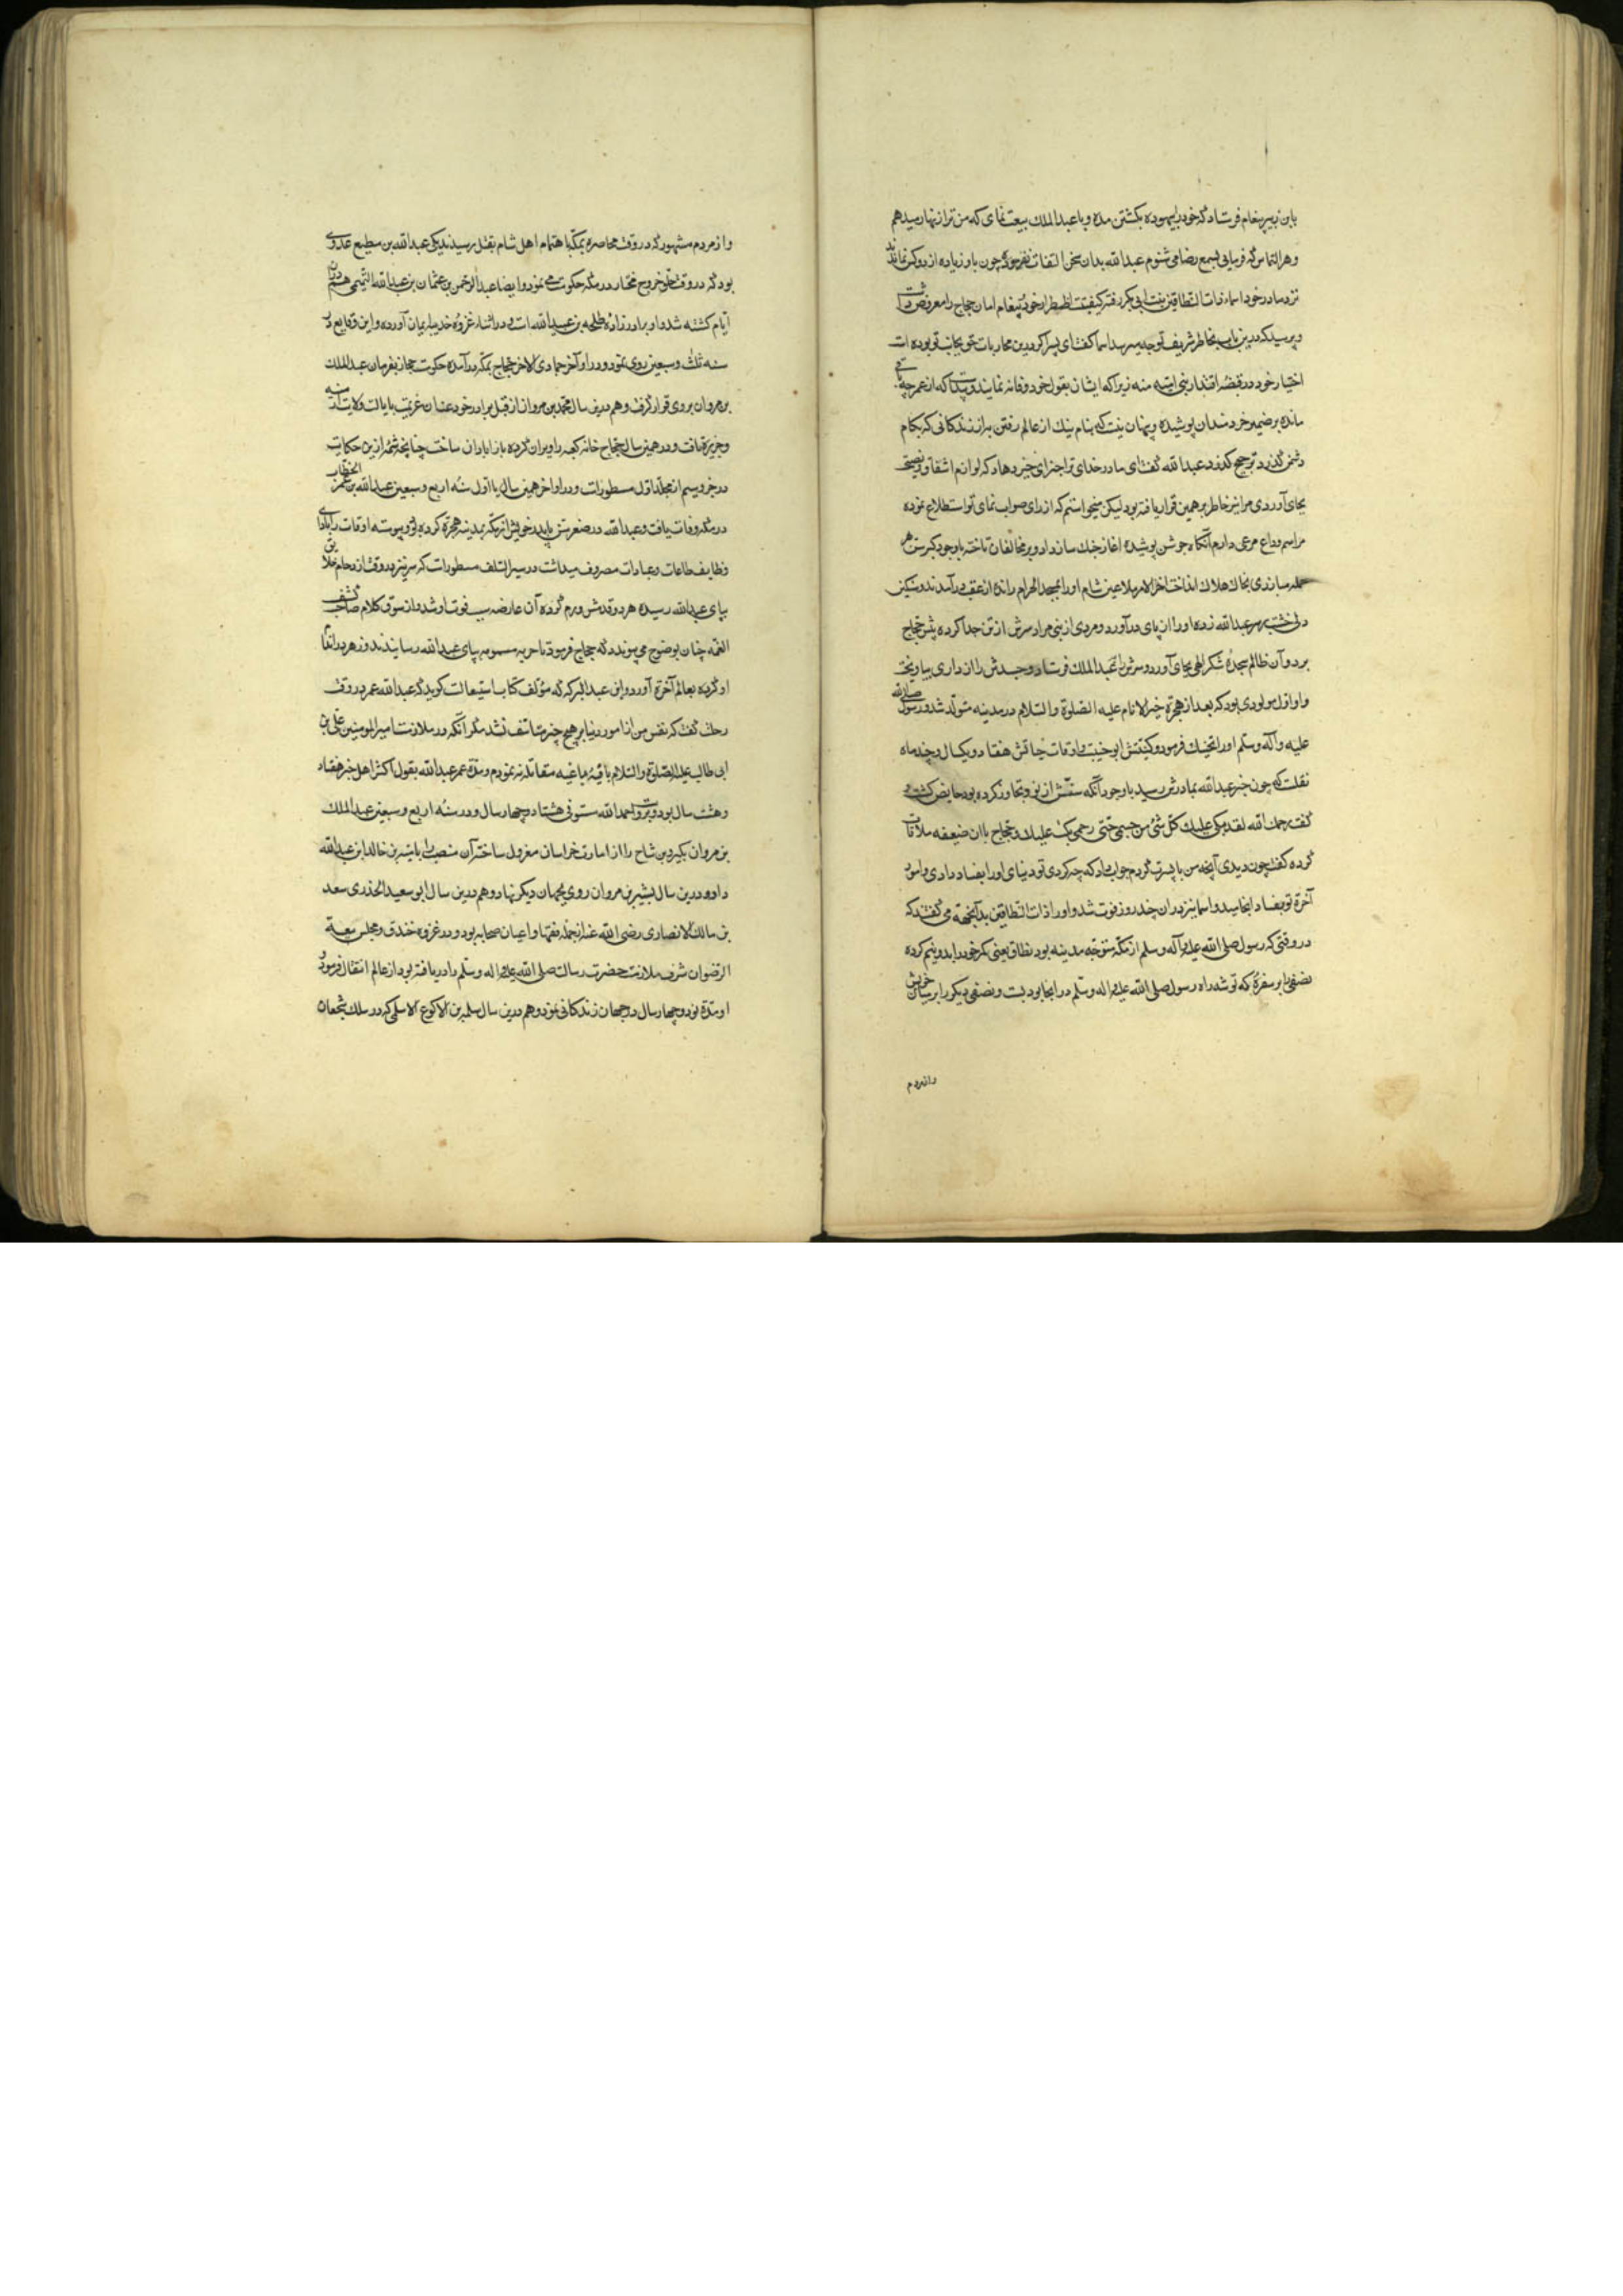 بابن زبیر پیغام فرستاد که خود را بیهوده بکشتن مده و با عبدالملك بیعت نمای که من ترا زنهار میدهم
و هر التماس که فرمایی بسمع رضا می شنوم عبدالله بدان سخن التفات نفرموده چون یاور زیاده از دو کس نماند
نزد مادر خود اسماء ذات النطاقین بنت ابی بکر رفته کیفیت اضطرار خود و پیغام امان حجاج را معروض داشت
و پرسید که درین باب بخاطر شریف تو چه میرسد اسما گفت ای پسر اگر درین محاربات حق بجانب تو بوده است
اختیار خود در قبضه اقتدار بنی امیه منه زیرا که ایشان بقول خود وفا نه نمایند و پیداست که از عمر چه باقی
مانده بر ضمیر خردمندان پوشیده و پنهان نیست که بنام نیك از عالم رفتن بر از زندکانی که بکام
دشمن گذرد ترجیح دارد عبدالله گفت ای مادر خدای ترا جزای خیر دهاد که لوازم اشفاق و نصیحت
بجای آوردی مرا نیز خاطر بر همین قرار یافته بود لیکن میخواستم که از رای صواب نمای تو استطلاع نموده
مراسم وداع مرعی دارم آنگاه جوشن پوشیده اغاز جنك ساز داد و بر مخالفان تاخته باوجود کبر سن هر
حمله مبارزی بخاك هلاك انداخت اخر الامر ملاعین شام او را بمسجد الحرام رانده از عقب درآمدند و
خشت بر سر عبدالله زده او را از پای درآورد و مردی از بنی مراد سرش از تن جدا کرده پیش حجاج
برد و آن ظالم سجده شکر الهی بجای آورد و سرش را نزد عبدالملك فرستاد و جسدش را از داری بیاویخت
و او اول مولودی بود که بعد از هجرة خیر الانام علیه الصلوة والسلام در مدینه متولد شد و رسول صلی الله
علیه و آله و سلم او را تحنیك فرمود و کنیتش ابو خبیب و اوقات حیاتش هفتاد و یکسال و چند ماه
نقلست که چون خبر عبدالله بمادرش رسید باوجود آنکه سنش از نود تجاوز کرده بود حایض کشت و
گفت رحمك الله لقد بکی علیك کل شئ من جسمی حتی رحمی بکت علیك و حجاج با ان ضعیفه ملاقات
کرده گفت چون دیدی آنچه من با پسرت کردم جواب داد که چه کردی تو دنیای او را بفساد دادی و امور
آخرة تو بفساد انجامید و اسما نیز در ان چند روز فوت شد و او را ذات النطاقین بدان جهة می گفتند که
در وقتی که رسول صلی الله علیه و آله و سلم از مکه متوجه مدینه بود نطاق یعنی کمر خود را بدو نیم کرده
نصفی را بر سفرۀ که توشه راه رسول صلی الله علیه و اله و سلم در انجا بود بست و نصفی دیکر را بر میان خویش
و از مردم
و از مردم مشهور که در وقت محاصره بمکه باهتمام اهل شام بقتل رسیدند یکی عبدالله بن مطیع عدوی
بود که در وقت خروج مختار در مکه حکومت می نمود و ایضا عبدالرحمن بن عثمان بن عبدالله التیمی هم در ان
ایام کشته شد و او برادر زاده طلحه بن عبیدالله است و در اثناء غزوه حدیبیه ایمان آورده و این وقایع در
سنه ثلث و سبعین روی نمود و در اواخر جمادی الاخر حجاج بمکه درآمده حکومت حجاز بفرمان عبدالملك
بن مروان بر وی قرار گرفت و هم درین سال محمد بن مروان از قبل برادر خود عنان عزیمت بایالت ولایت ارمنیه
و جزیره یافت و در همین سال حجاج خانه کعبه را ویران کرده باز ابادان ساخت چنانچه شمه از این حکایت
در جزو سیم از مجلد اول مسطورات و در اواخر همین سال یا اول سنه اربع و سبعین عبدالله بن عمر الخطاب
در مکه وفات یافت و عبدالله در صغر سن با پدر خویش از مکه بمدینه هجرة کرده بود و پیوسته اوقات را بادای
وظایف طاعات و عبادات مصروف میداشت در سیر السلف مسطورات که سر نیزه در وقت ازدحام خلایق
بپای عبدالله رسیده هر دو قدمش ورم کرده آن عارضه سبب فوت او شد و از سوق کلام صاحب کشف
الغمه چنان بوضوح می پیوندد که حجاج فرمود تا حربه مسمومه بپای عبدالله رسانیدند و زهر در اعضا
او کرده بعالم آخرة آورد و ابن عبدالبر که مؤلف کتاب استیعابست کوید که عبدالله عمر در وقت
رحلت گفت که نفس من از امور دنیا بر هیچ چیز متاسف نشد مگر آنکه در ملازمت امیر المومنین علی بن
ابی طالب علیه الصلوة والسلام با فئه باغیه مقاتله نه نمودم و مدة عمر عبدالله بقول اکثر اهل خبر هفتاد
و هشت سال بود و بروایت حمدالله مستوفی هشتاد و چهار سال و در سنه اربع و سبعین عبدالملك
بن مروان بکیر بن شاح را از امارت خراسان معزول ساخته آن منصب را بامیة بن خالد ابن عبدالله
داد و درین سال بشیر بن مروان روی بجهان دیکر نهاد و هم درین سال ابو سعید الخدری سعد
بن مالك الانصاری رضی الله عنه از جمله فقها و اعیان صحابه بود و در غزوه خندق و مجلس بیعة
الرضوان شرف ملازمت حضرت رسالت صلی الله علیه و اله و سلم را دریافته بود از عالم انتقال فرمود
او مدة نود و چهار سال در جهان زندکانی نمود و هم درین سال سلمه بن الاکوع الاسلمی که در سلك شجعان